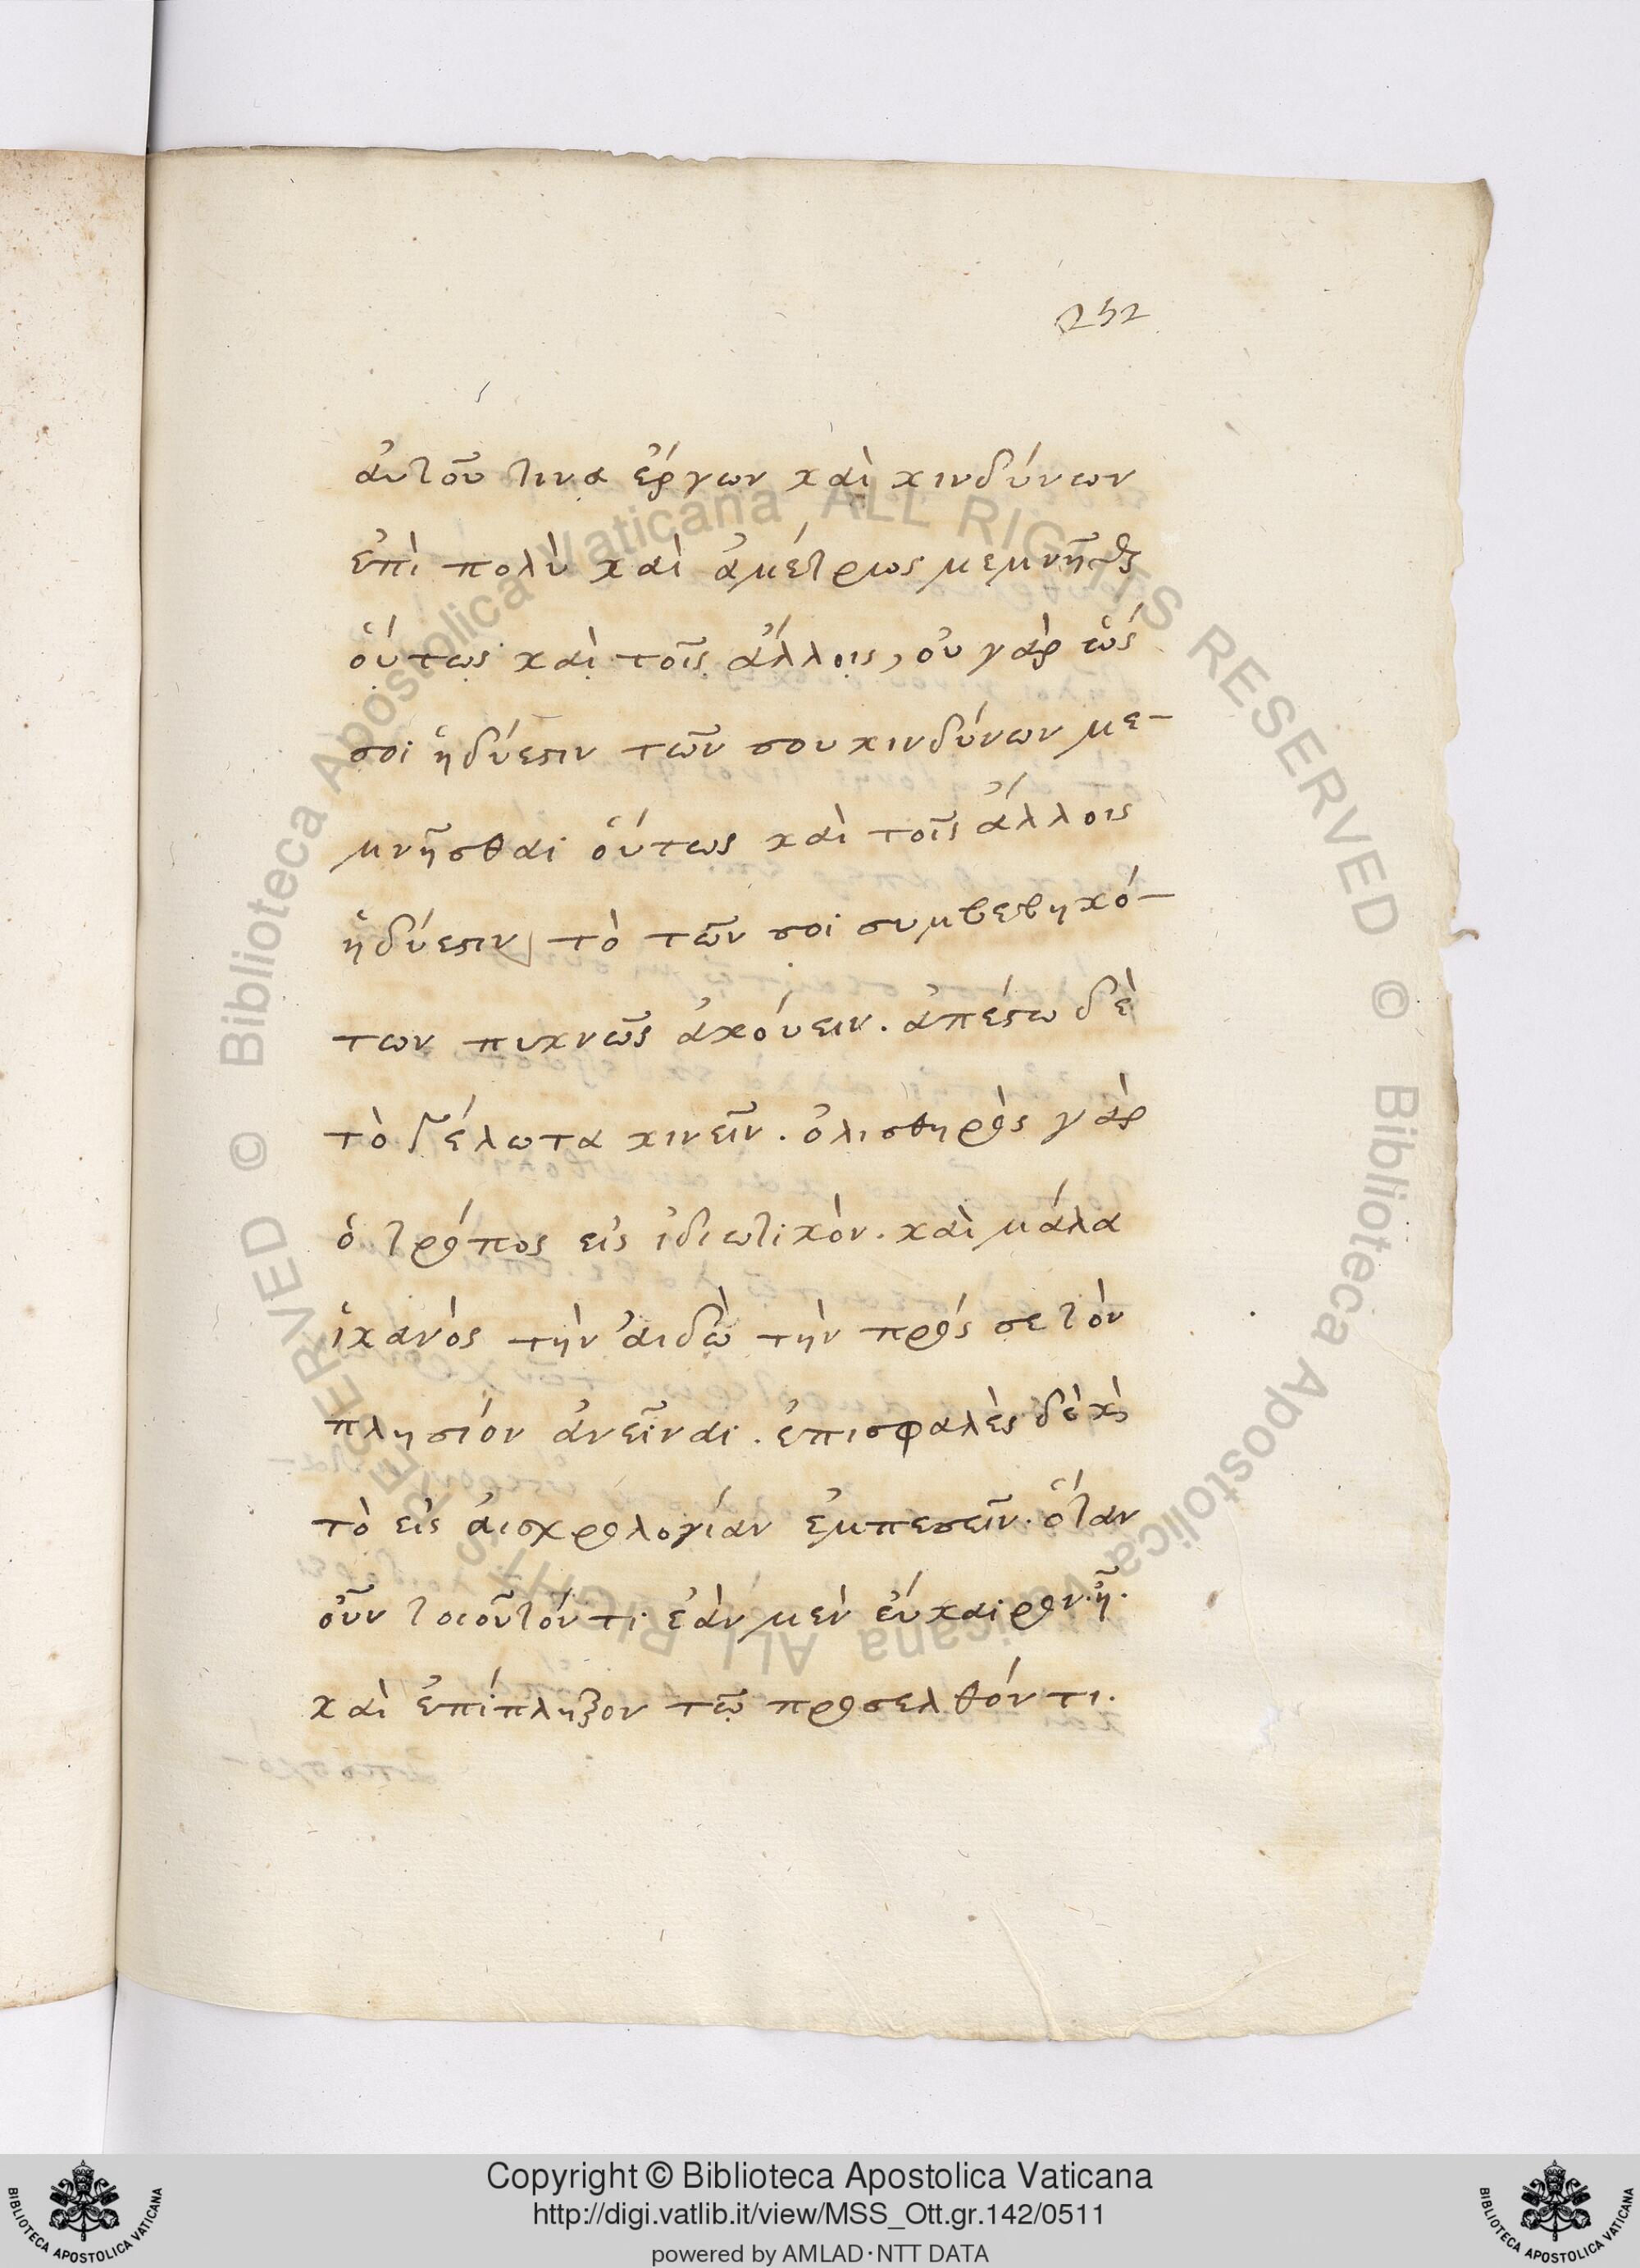 252
ἀυτοῦ τινα ἔργων καὶ κινδύνων
ἐπὶ πολὺ καὶ ἀμέτρως μεμνῆσθαι
ὅυτως καὶ τοῖς ἄλλοις, οὐ γὰρ ὥς
σοι ἡδύ ἐστιν τῶν σου κινδύνων με-
μνῆσθαι ὅυτως καὶ τοῖς ἄλλοις
ἡδύ ἐστιν τὸ τῶν σοι συμβεβηκό-
των πυκνῶς ἀκόυειν. ἀπέστω δὲ
τὸ γέλωτα κινεῖν. ὀλισθηρὸς γὰρ
ὁ τρόπος εἰς ἰδιωτικὸν. καὶ μάλα
ἱκανὸς τὴν ἀιδῶ τὴν πρός σε τὸν
πλησιόν ἀνεῖναι. ἐπισφαλὲς δὲ κὶ
τὸ εἰς ἀισχρολογίαν ἐμπεσεῖν. ὅταν
οὖν τοιοῦτόν τι. ἐὰν μὲν ἐύκαιρον. ἦ.
καὶ ἐπίπληξον τῷ προσελθόντι.
Copyright © Biblioteca Apostolica Vaticana
http://digi.vatlib.it/view/MSS_Ott.gr.142/0511
powered by AMLAD·NTT DATA
BIBLIOTECA APOSTOLICA VATICANA
BIBLIOTECA APOSTOLICA VATICANA
© Biblioteca Apostolica Vaticana ALL RIGHTS RESERVED
© Biblioteca Apostolica Vaticana ALL RIGHTS RESERVED